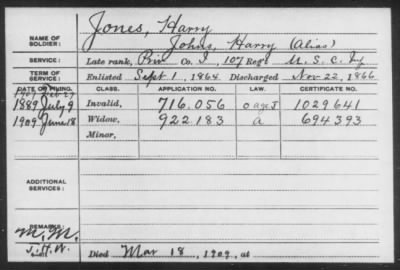 Jones, Harry
NAME OF SOLDIER: Johns, Harry (Alias)
SERVICE: Late rank, Priv Co. I, 107 Reg't U. S. C. Inf
TERM OF SERVICE: Enlisted Sept 1, 1864 Discharged Nov 22, 1866
DATE OF FILING. CLASS. APPLICATION NO. LAW. CERTIFICATE NO.
1907 Feb 27
1889 July 9 Invalid, 716.056 1029641
1909 June 18 Widow, 922.183 a 694393
Minor,
ADDITIONAL SERVICES:
REMARKS:
J.H.W.
Died Mar 18, 1909, at